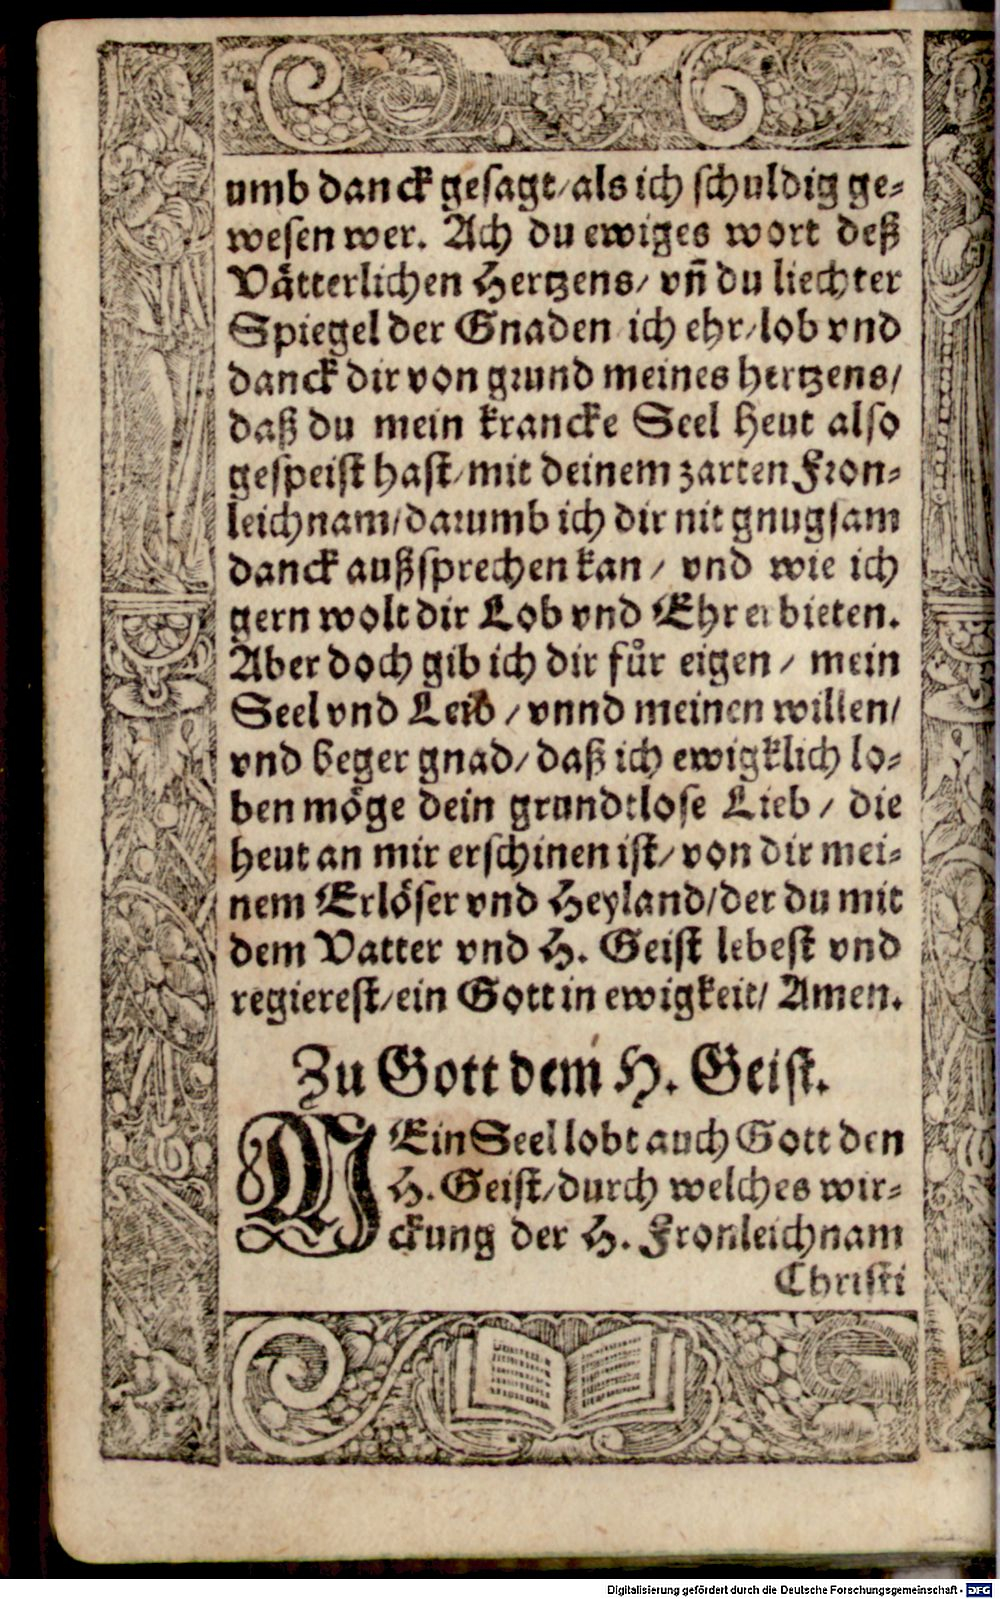 umb danck gesagt/als ich schuldig ge-
wesen wer. Ach du ewiges wort deß
Vätterlichen Hertzens/ vñ du liechter
Spiegel der Gnaden ich ehr/lob vnd
danck dir von grund meines hertzens/
daß du mein krancke Seel heut also
gespeist hast/mit deinem zarten Fron-
leichnam/darumb ich dir nit gnugsam
danck außsprechen kan / vnd wie ich
gern wolt dir Lob vnd Ehr erbieten.
Aber doch gib ich dir fůr eigen / mein
Seel vnd Leib / vnnd meinen willen/
vnd beger gnad/daß ich ewigklich lo-
ben möge dein grundtlose Lieb / die
heut an mir erschinen ist/von dir mei-
nem Erlöser vnd Heyland/der du mit
dem Vatter vnd H. Geist lebest vnd
regierest/ein Gott in ewigkeit/ Amen.
Zu Gott dem H. Geist.
MEin Seel lobt auch Gott den
H. Geist/durch welches wir-
ckung der H. Fronleichnam
Christi
Digitalisierung gefördert durch die Deutsche Forschungsgemeinschaft - DFG